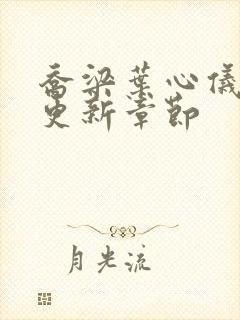 乔梁叶心仪
更新章节
月光流